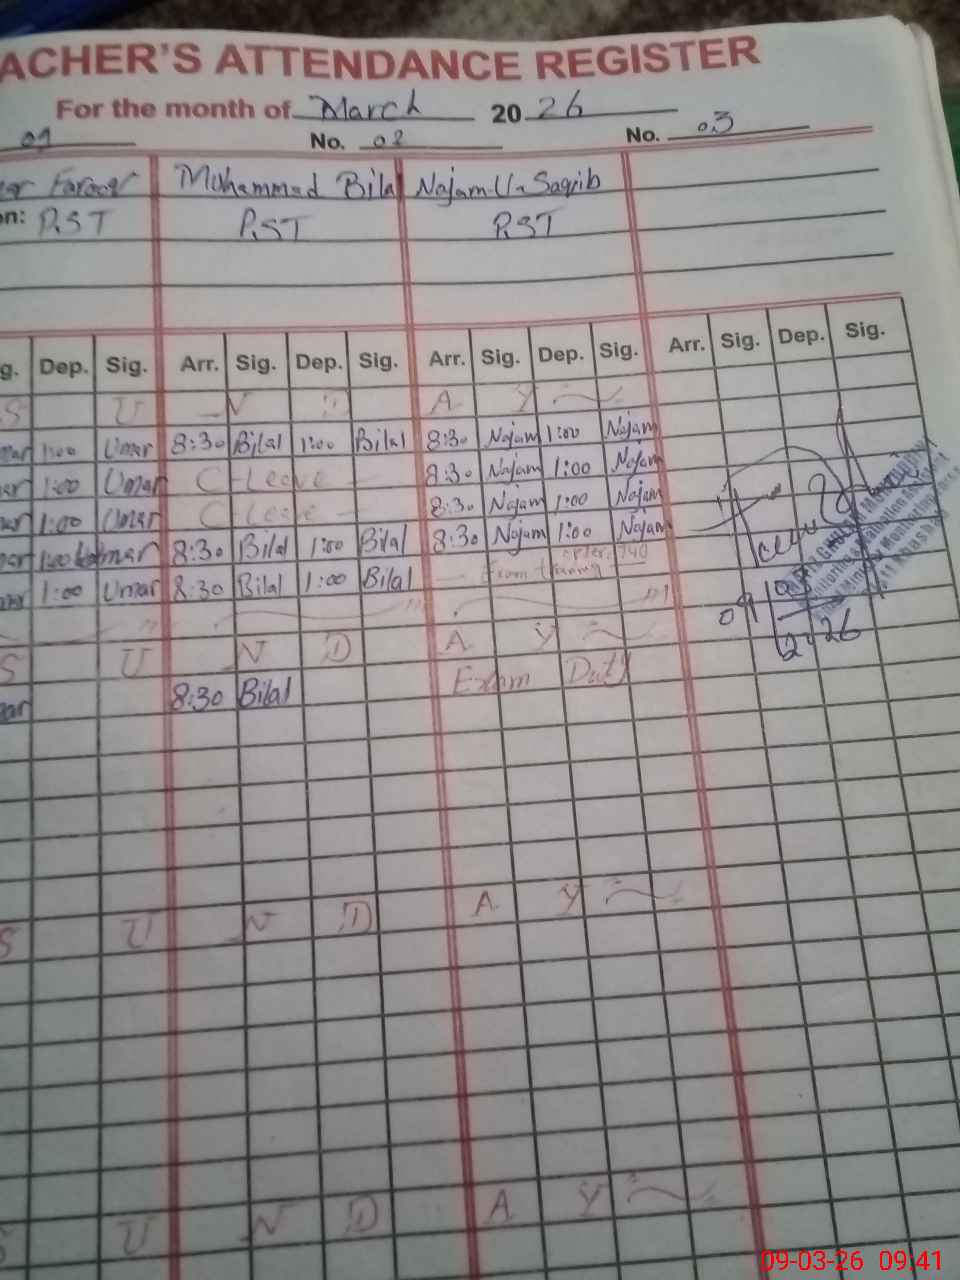 ACHER'S ATTENDANCE REGISTER
For the month of March 2026
09 No. 02 No. 03
Farooq Muhammad Bilal Najam-Us-Saqib
on: P.ST P.ST P.ST
g. Dep. Sig. Arr. Sig. Dep. Sig. Arr. Sig. Dep. Sig. Arr. Sig. Dep. Sig.
S U N D A Y
mar 1:00 Umar 8:30 Bilal 1:00 Bilal 8:30 Najam 1:00 Najam
mar 1:00 Umar C-Leave 8:30 Najam 1:00 Najam
mar 1:00 Umar C-Leave 8:30 Najam 1:00 Najam
mar 1:00 Umar 8:30 Bilal 1:00 Bilal 8:30 Najam 1:00 Najam
mar 1:00 Umar 8:30 Bilal 1:00 Bilal Exam training
09/03/2026
S U N D A Y
mar 8:30 Bilal Exam Duty
S U N D A Y
S U N D A Y
09-03-26 09:41